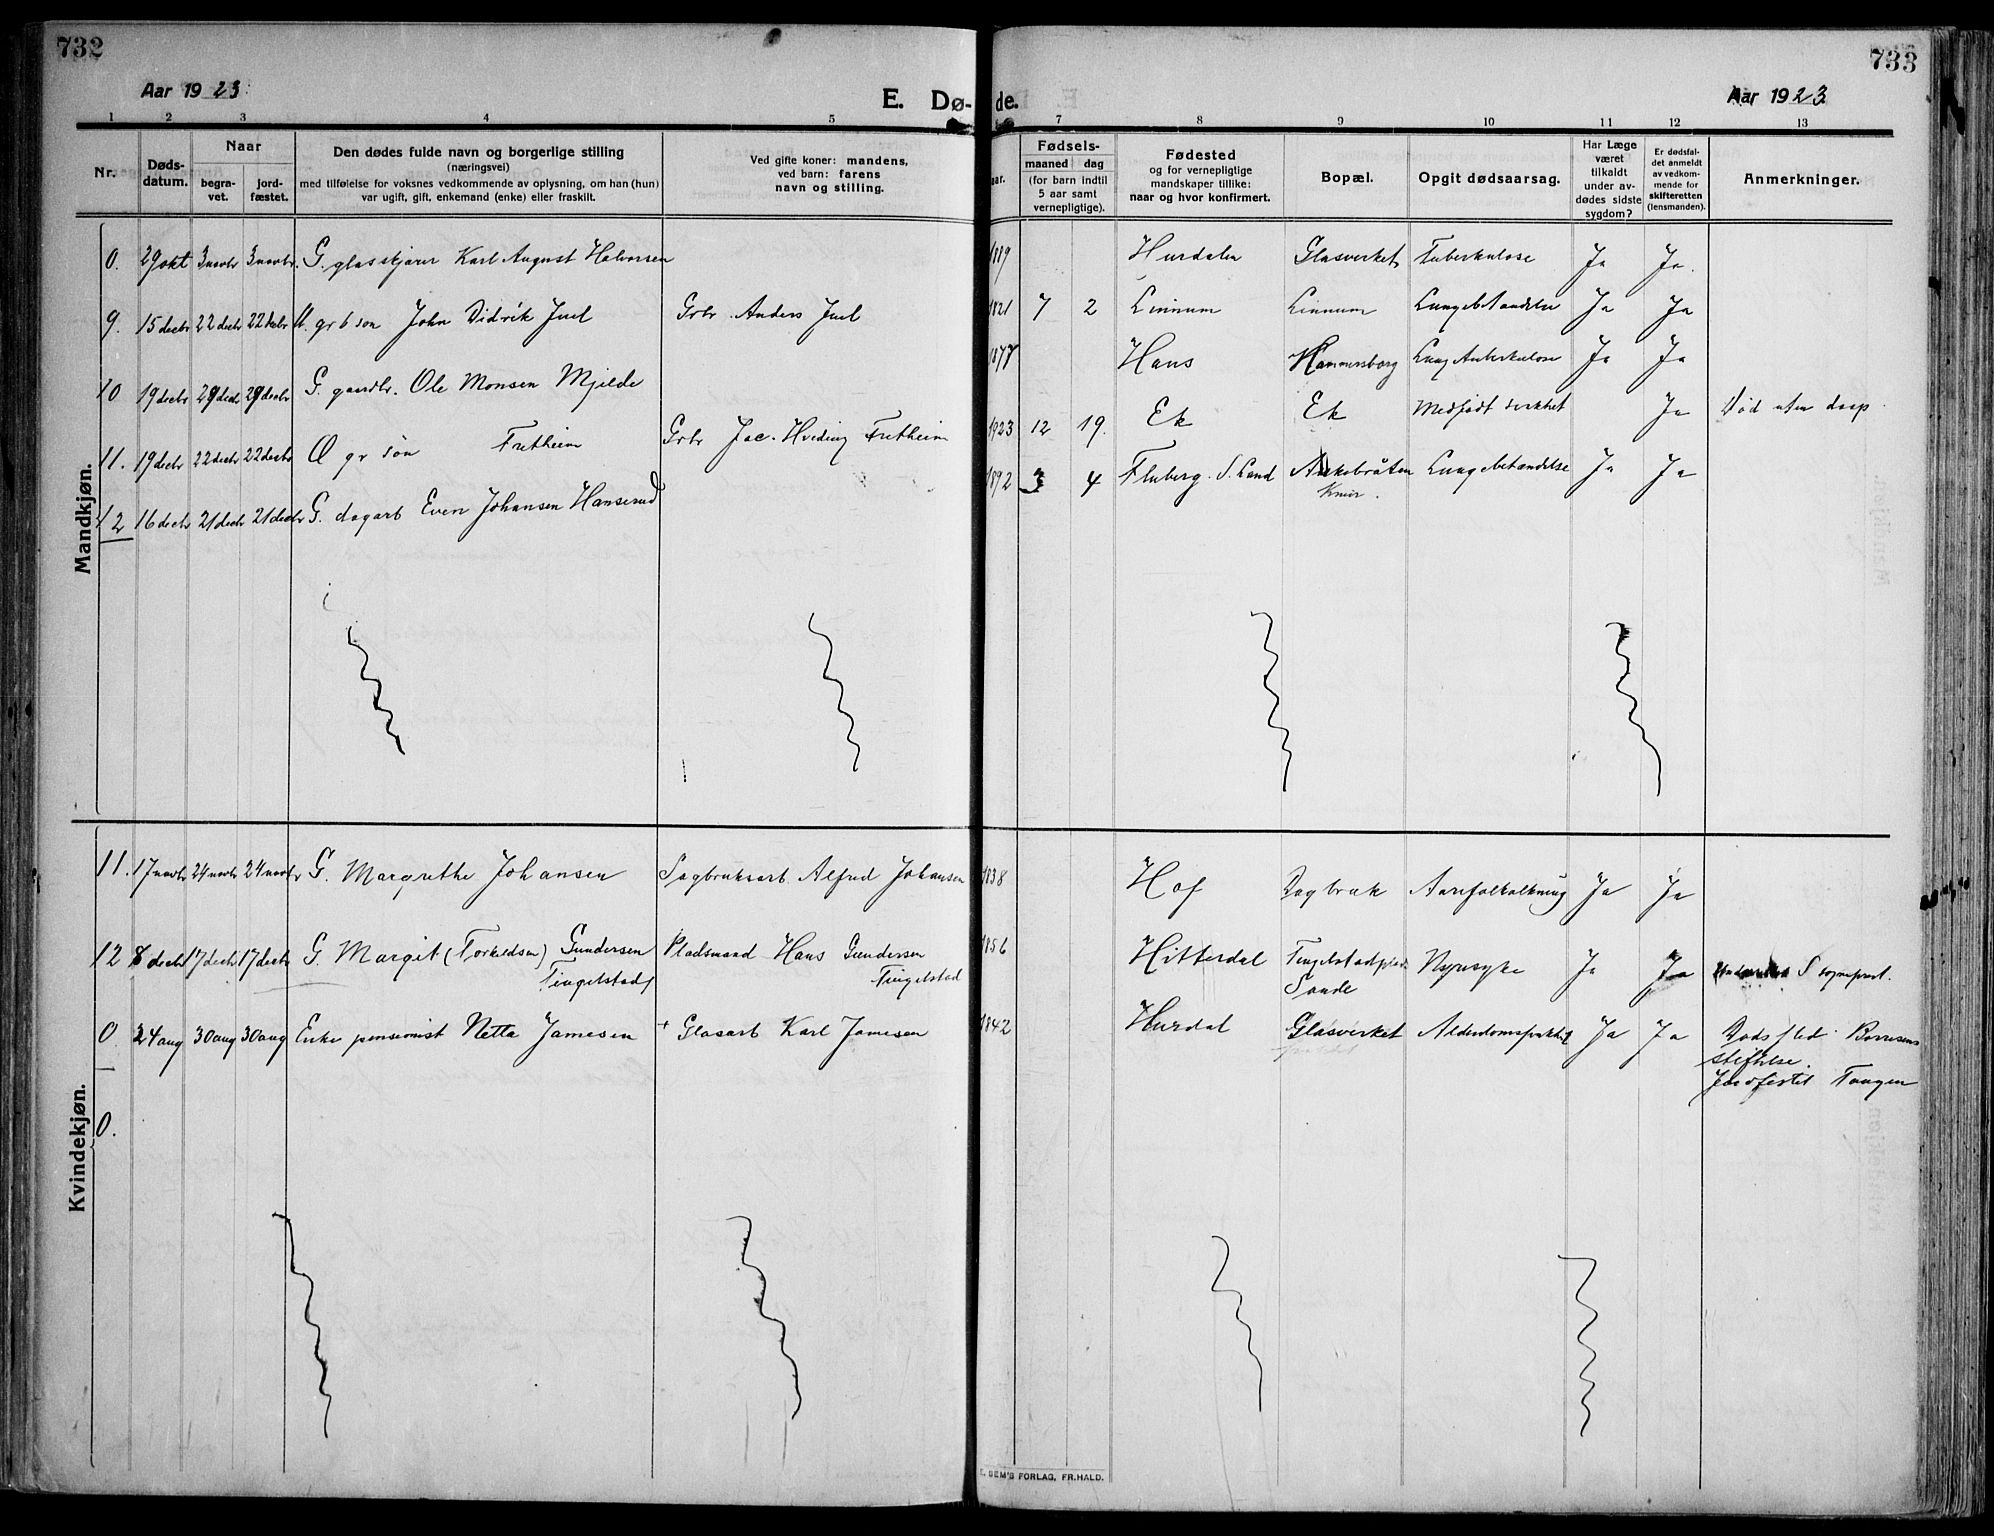 732
733
Aar 1923.
E. Dø-
de.
Aar 1923
1 2 3 4 5 7 8 9 10 11 12 13
Nr.
Døds-
datum.
Naar
begra-
vet.
jord-
fæstet.
Den dødes fulde navn og borgerlige stilling
(næringsvei)
med tilføielse for voksnes vedkommende av oplysning, om han (hun)
var ugift, gift, enkemand (enke) eller fraskilt.
Ved gifte koner: mandens,
ved barn: farens
navn og stilling.
Fødsels-
maaned
dag
(for barn indtil
5 aar samt
vernepligtige).
Fødested
og for vernepligtige
mandskaper tillike:
naar og hvor konfirmert.
Bopæl.
Opgit dødsaarsag.
Har Læge
været
tilkaldt
under av-
dødes sidste
sygdom?
Er dødsfal-
det anmeldt
av vedkom-
mende for
skifteretten
(lensmanden).
Anmerkninger.
Mandkjøn.
0. 29 okt 3 novbr 3 novbr. G. glasskjærer Karl August Halvorsen 1889 Hurdalen Glasverket Tuberkulose Ja Ja.
9. 15 decbr 22 decbr 22 decbr U. grb søn John Didrik Juel Grbr. Anders Juel 1921 7 2 Linnum Linnum Lungebetændelse Ja Ja
10 19 decbr 29 decb 29 decbr G. gaardbr. Ole Monsen Mjelde 1877 Haus Hammersborg Lungtuberkulose Ja Ja
11. 19 decbr 22 decbr 22 decbr U gr søn Fretheim Grbr Jac. Hveding Fretheim 1923 12 19. Ek Ek Medfødt svækket Ja Død uten daap
12 16 decbr 21 decbr 21 decbr G. dagarb Even Johansen Hanserud 1892 3 4 Fluberg. S. Land Ankebråten Lungebetændelse Ja Ja
Knive.
Kvindekjøn.
11. 17 novbr 24 novbr 24 novbr G. Margrethe Johansen Sagbruksarb. Alfred Johansen 1838 Hof Dagbruk Aareforkalkning Ja Ja
12 8 decbr 17 decbr 17 decbr G. Margit (Torkildsen) Gundersen Pladsmand Hans Gundersen 1856 Hitterdal Tingelstadplads Nyresyke Ja Ja S sogneprest.
Tingelstad Tingelstad Sande
0. 24 aug 30 aug 30 aug Enke pensionist Netta Jamesen + Glasarb Karl Jamesen 1842 Hurdal Glasverket Ja Ja Dødssted Børresens
stiftelse.
Jordfestet Tangen
0.
E. SEM'S FORLAG, FR.HALD.